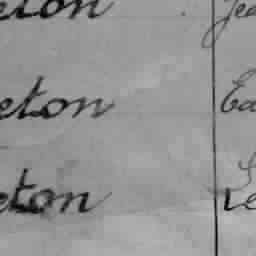 eton Jea
eton Ea
eton Le